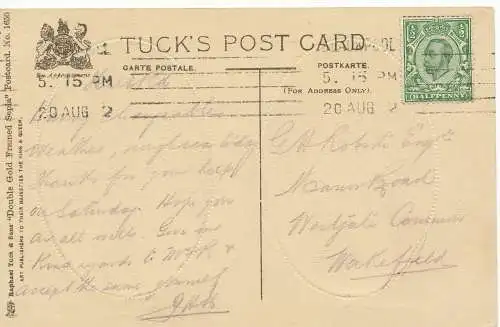 TUCK'S POST CARD
CARTE POSTALE.
POSTKARTE.
(FOR ADDRESS ONLY.)
By Appointment
5. 15 PM
20 AUG 2
5. 15 PM
20 AUG 2
HALFPENNY
Raphael Tuck & Sons' "Double Gold Framed Sepia" Postcard. No. 1650
ART PUBLISHERS TO THEIR MAJESTIES THE KING & QUEEN.
weather,
thanks for your help
on Saturday. Hope you
are all well. Give my
Kind words to &
accept the same yourself
G. H. Roberts Esq
Road
Westgate Common
Wakefield